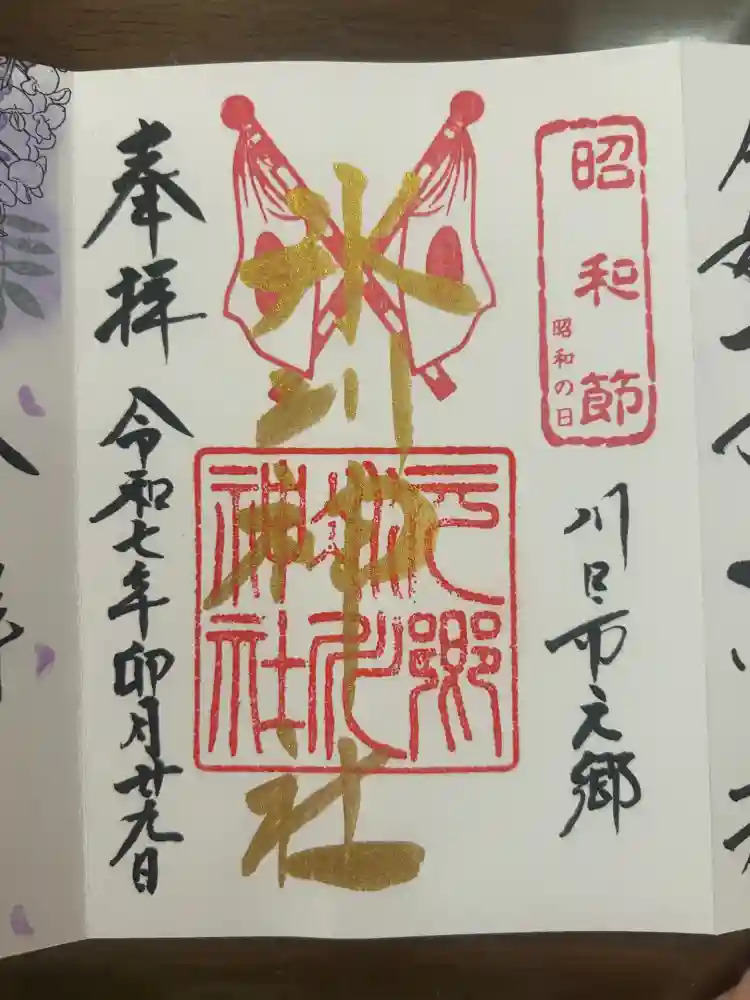 昭和節
昭和の日
川口市元郷
氷川神社
元郷
氷川
神社
奉拝
令和七年卯月廿九日